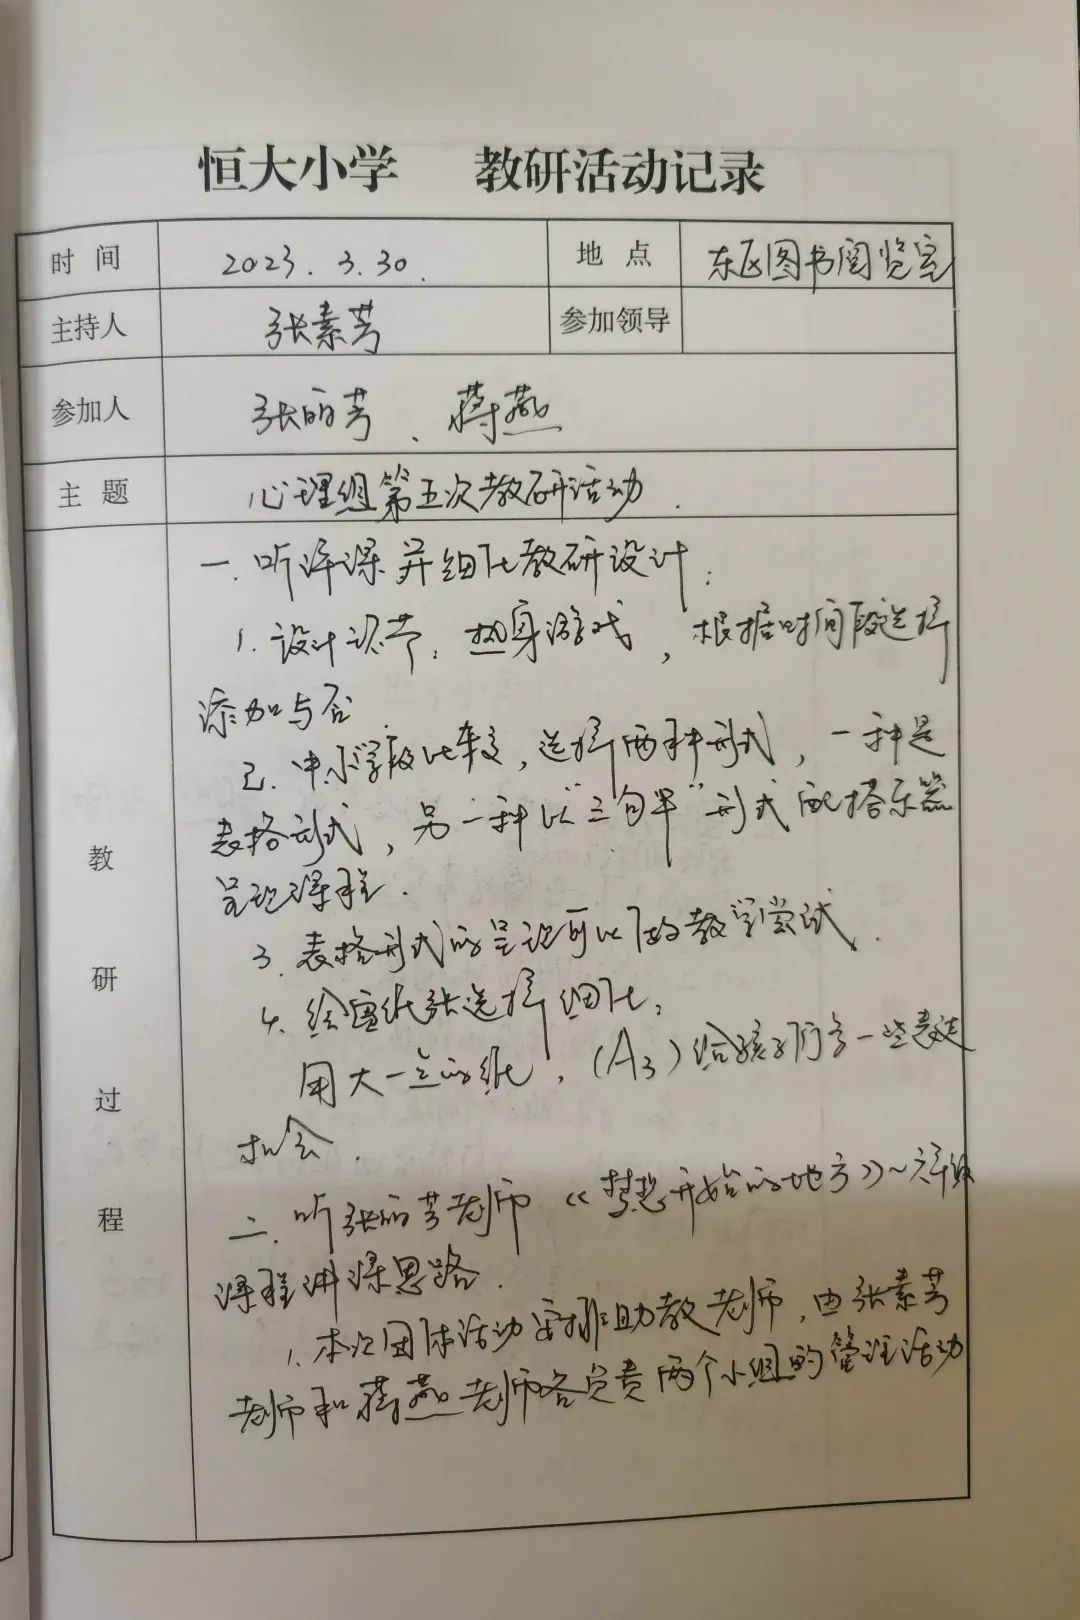 恒大小学 教研活动记录
时间 2023.3.30. 地点 东区图书阅览室
主持人 张素芳 参加领导
参加人 张丽芳、蒋燕
主题 心理组第五次教研活动.
教研过程
一.听评课并细化教研设计:
1.设计环节:热身游戏,根据时间段选择
添加与否
2.中小学段比较,选择两种形式,一种是
表格形式,另一种以“三句半”形式配搭乐器
呈现课程.
3.表格形式的呈现可以下放教学尝试.
4.绘画纸张选择细化,
用大一点的纸,(A3)给孩子们多一些表达
机会.
二.听张丽芳老师《梦想开始的地方》~六年级
课程讲课思路.
1.本次团体活动安排助教老师,由张素芳
老师和蒋燕老师各负责两个小组的管理活动